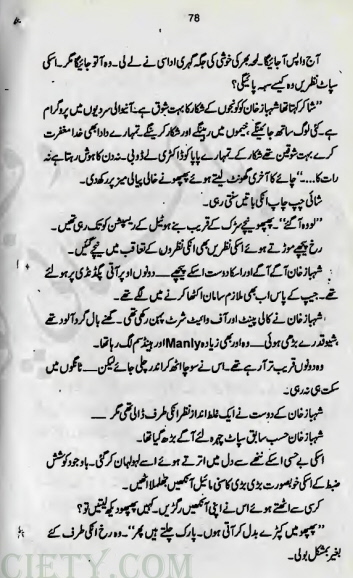 78
آج واپس آ جائیگا۔ لمحہ بھر کی خوشی کی جگہ گہری اداسی نے لے لی۔ وہ آ تو جائیگا مگر۔ اسکی
سپاٹ نظریں وہ کیسے سہہ پائیگی؟
”شاکر کہتا تھا شہباز خان کو کونجوں کے شکار کا بہت شوق ہے۔ آنیوالی سردیوں میں پروگرام
ہے کئی لوگ ساتھ جائینگے، خیموں میں رہینگے اور شکار کرینگے۔ تمہارے دادا بھی خدا مغفرت
کرے بہت شوقین تھے شکار کے۔ تمہارے پاپا کو ڈاکٹری لے ڈوبی۔ نہ دن کا ہوش رہتا ہے نہ
رات کا....“ چائے کا آخری گھونٹ لیتے ہوئے پھپھو نے خالی پیالی میز پر رکھ دی۔
شائی چپ چاپ انکی باتیں سنتی رہی۔
”لو وہ آ گئے“۔ پھپھو نیچے سڑک کے قریب بنے ہوٹل کے ریسپشن کو تک رہی تھیں۔
رخ پیچھے موڑتے ہوئے اسکی نظریں بھی انکی نظروں کے تعاقب میں نیچے گئیں۔
شہباز خان آگے آگے اور اسکا دوست اسکے پیچھے — دونوں اوپر آتی پگڈنڈی پر ہو لئے
تھے۔ جیپ کے پاس اب بھی ملازم سامان اکٹھا کرنے میں لگے تھے۔
شہباز خان نے کالی پینٹ اور آف وائیٹ شرٹ پہن رکھی تھی۔ گھنے بال گرد آلود تھے
شیو قدرے بڑھی ہوئی — وہ اور بھی زیادہ Manly اور ہینڈسم لگ رہا تھا۔
وہ دونوں قریب تر آ رہے تھے۔ اس نے سوچا اٹھ کر اندر چلی جائے لیکن — ٹانگوں میں
سکت ہی نہ رہی۔
شہباز خان کے دوست نے ایک غلط انداز نظر انکی طرف ڈالی تھی مگر —
شہباز خان حسب سابق سپاٹ چہرہ لئے آگے بڑھ گیا تھا۔
اسکی بے حسی اسکے ننھے سے دل میں اترتے ہوئے اسے لہولہان کر گئی۔ باوجود کوشش
ضبط کے اسکی خوبصورت بڑی بڑی کاسنی مائیل آنکھیں جھلملا اٹھیں۔
کرسی سے اٹھتے ہوئے اس نے اپنی آنکھیں رگڑیں۔ کہیں پھپھو دیکھ لیتیں تو؟
”پھپھو میں کپڑے بدل کر آتی ہوں۔ پارک چلتے ہیں پھر“۔ وہ رخ انکی طرف کئے
بغیر بمشکل بولی۔
CIETY.COM